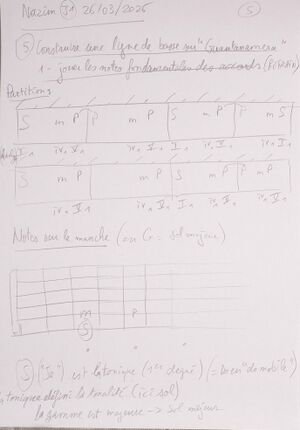 Nazim J1 26/03/2026 (5)
(5) Construire une ligne de basse sur "Guantanamera"
1 - jouer les notes fondamentales des accords (Refrain)
Partitions
S m P P m P S m P P m S
I1 IV1 V1 IV1 V1 I1 IV1 V1 IV1 V1
m P m P S m P m P
IV1 V1 IV1 V1 I1 IV1 V1 IV1 V1
Notes sur le manche (en G = sol majeur)
m P
(S)
(S) ("Je") est la tonique (1er degré) (= Do en "do mobile")
la tonique défini la tonalité. (ici sol)
la gamme est majeure → Sol majeur